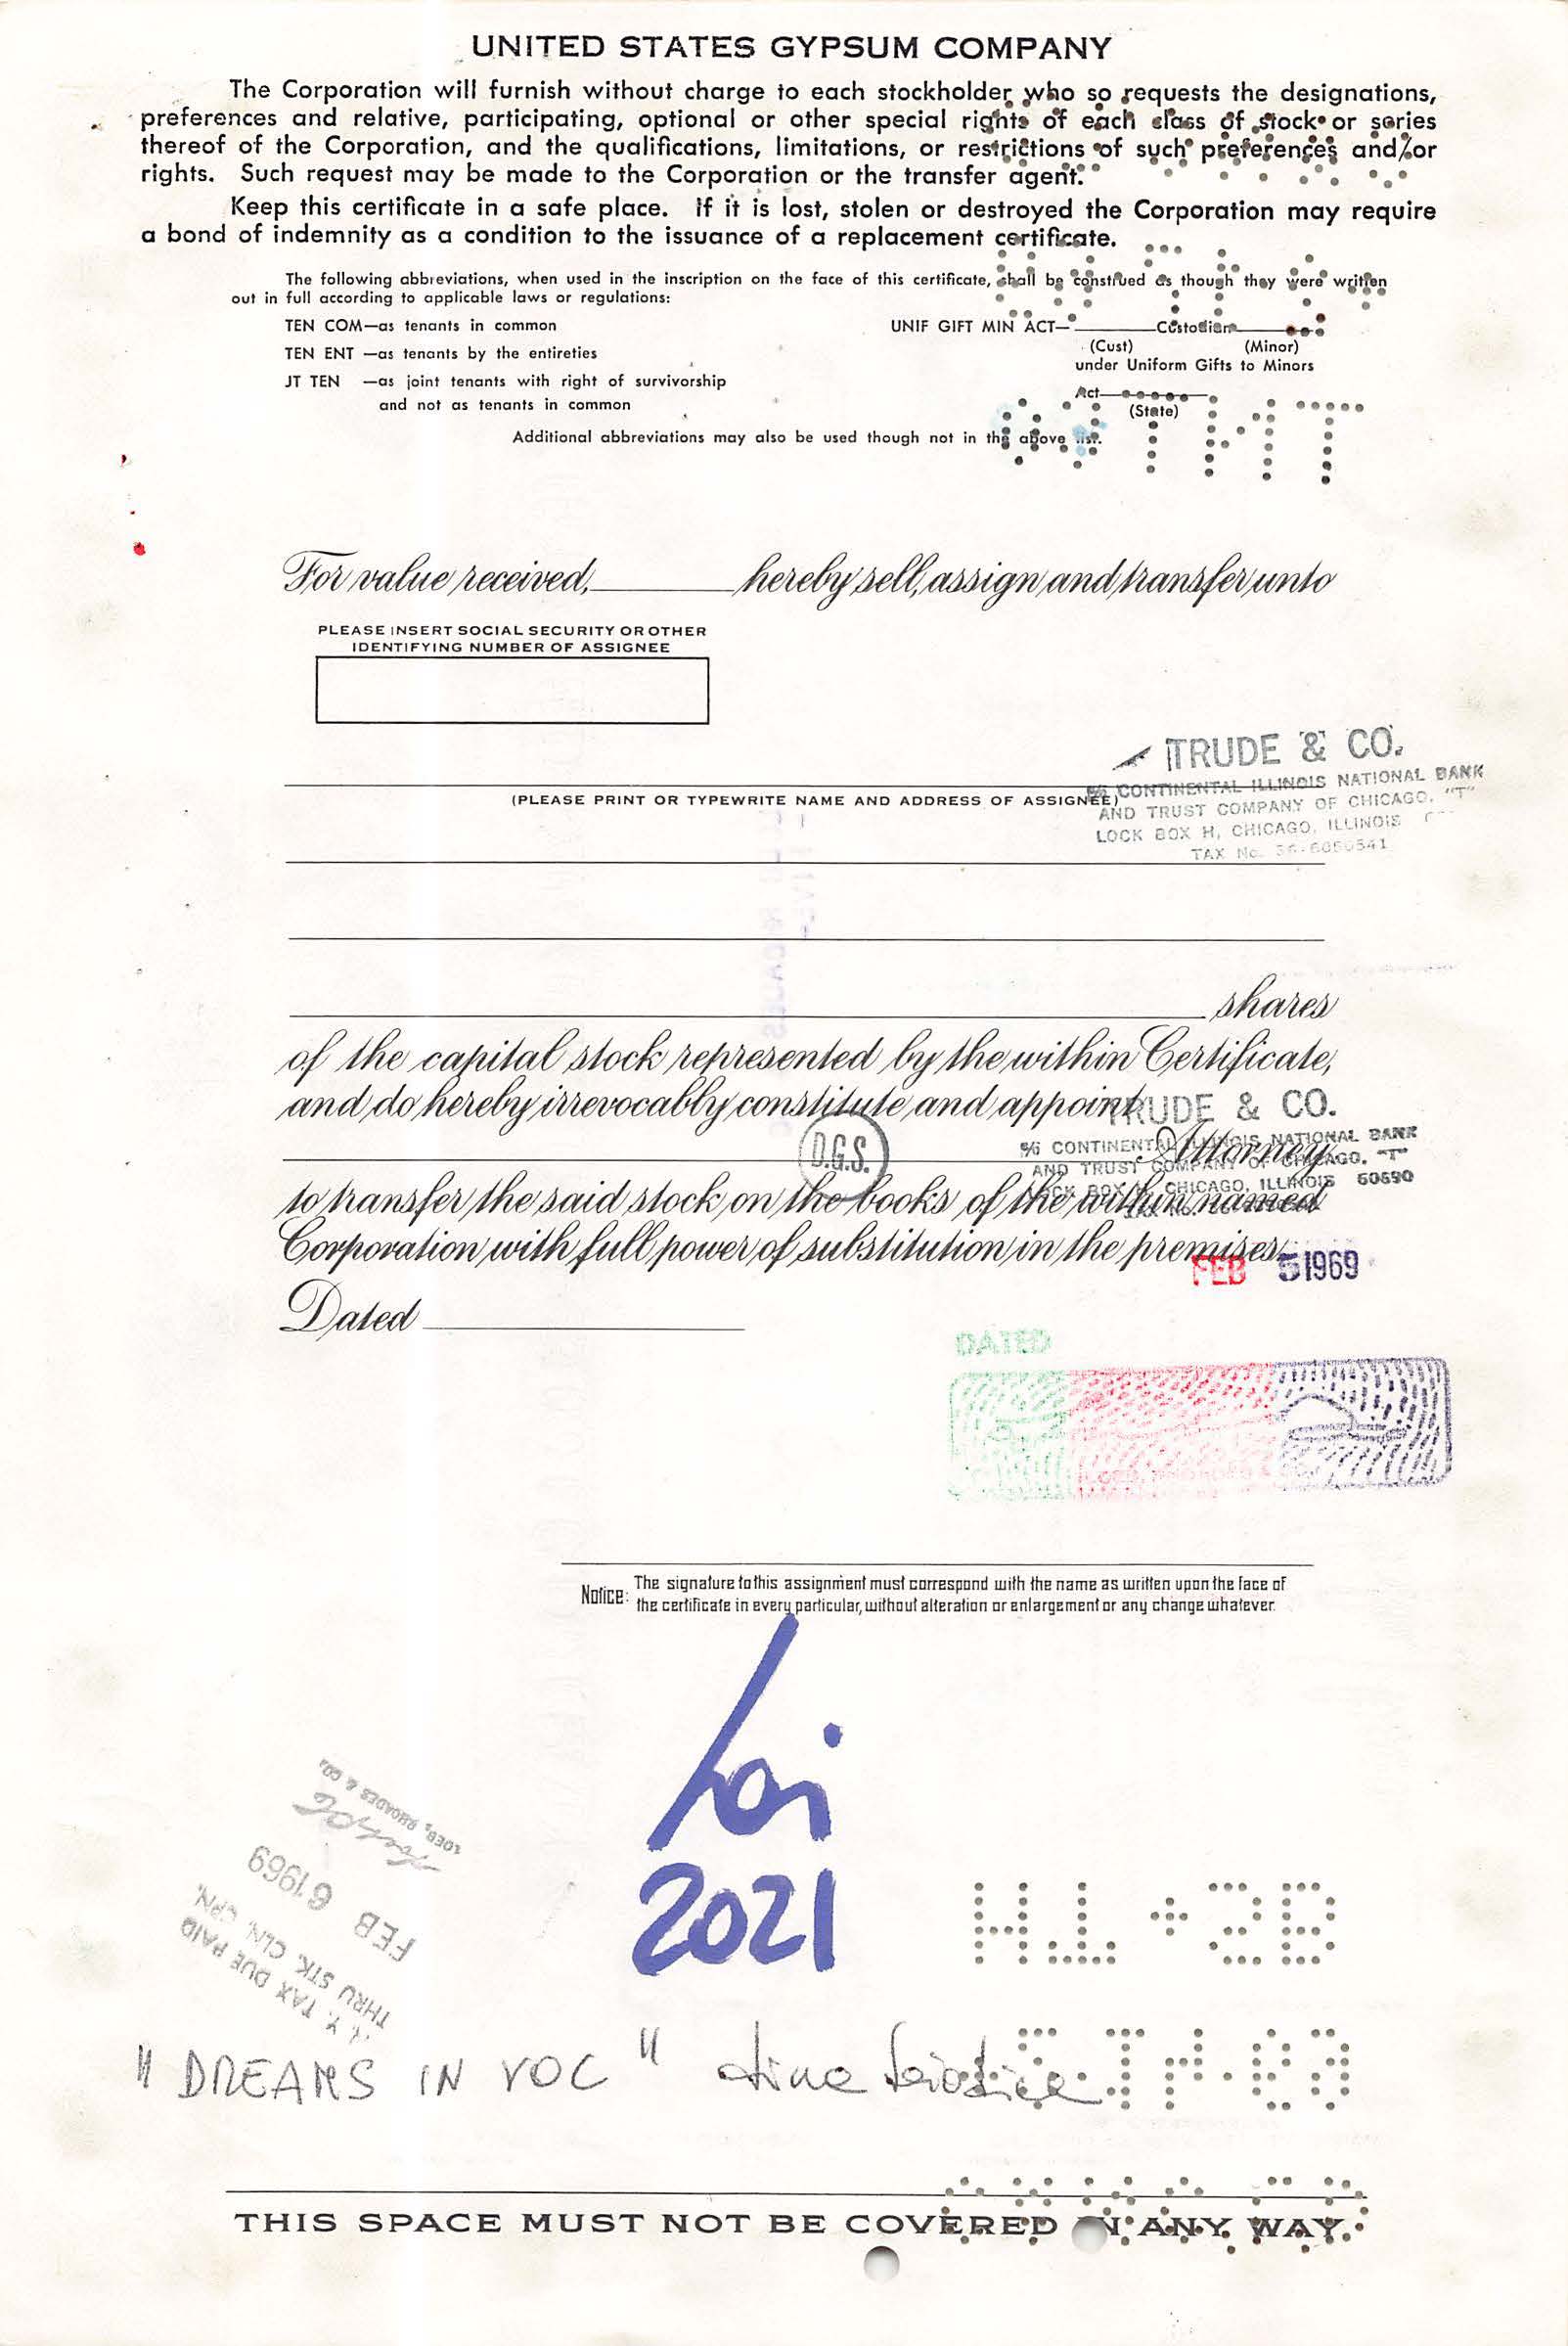 UNITED STATES GYPSUM COMPANY
The Corporation will furnish without charge to each stockholder who so requests the designations,
preferences and relative, participating, optional or other special rights of each class of stock or series
thereof of the Corporation, and the qualifications, limitations, or restrictions of such preferences and/or
rights. Such request may be made to the Corporation or the transfer agent.
Keep this certificate in a safe place. If it is lost, stolen or destroyed the Corporation may require
a bond of indemnity as a condition to the issuance of a replacement certificate.
The following abbreviations, when used in the inscription on the face of this certificate, shall be construed as though they were written
out in full according to applicable laws or regulations:
TEN COM—as tenants in common
UNIF GIFT MIN ACT—________Custodian________
(Cust) (Minor)
TEN ENT —as tenants by the entireties
under Uniform Gifts to Minors
JT TEN —as joint tenants with right of survivorship
and not as tenants in common
Act________
(State)
Additional abbreviations may also be used though not in the above list.
For value received, ________ hereby sell, assign and transfer unto
PLEASE INSERT SOCIAL SECURITY OR OTHER
IDENTIFYING NUMBER OF ASSIGNEE
TRUDE & CO.
% CONTINENTAL ILLINOIS NATIONAL BANK
(PLEASE PRINT OR TYPEWRITE NAME AND ADDRESS OF ASSIGNEE)
AND TRUST COMPANY OF CHICAGO, "T"
LOCK BOX H, CHICAGO, ILLINOIS
TAX No. 36-6050541
________ shares
of the capital stock represented by the within Certificate,
and do hereby irrevocably constitute and appoint
TRUDE & CO.
D.G.S.
% CONTINENTAL ILLINOIS NATIONAL BANK
AND TRUST COMPANY OF CHICAGO, "T"
LOCK BOX H, CHICAGO, ILLINOIS 60690
________ Attorney
to transfer the said stock on the books of the within named
Corporation with full power of substitution in the premises.
FEB 5 1969
Dated ________
DATED
Notice: The signature to this assignment must correspond with the name as written upon the face of
the certificate in every particular, without alteration or enlargement or any change whatever.
2021
LOEB, RHOADES & CO.
FEB 6 1969
N. Y. TAX DUE PAID
THRU STK. CLN. CPN.
"DREAMS IN VOC"
THIS SPACE MUST NOT BE COVERED IN ANY WAY.